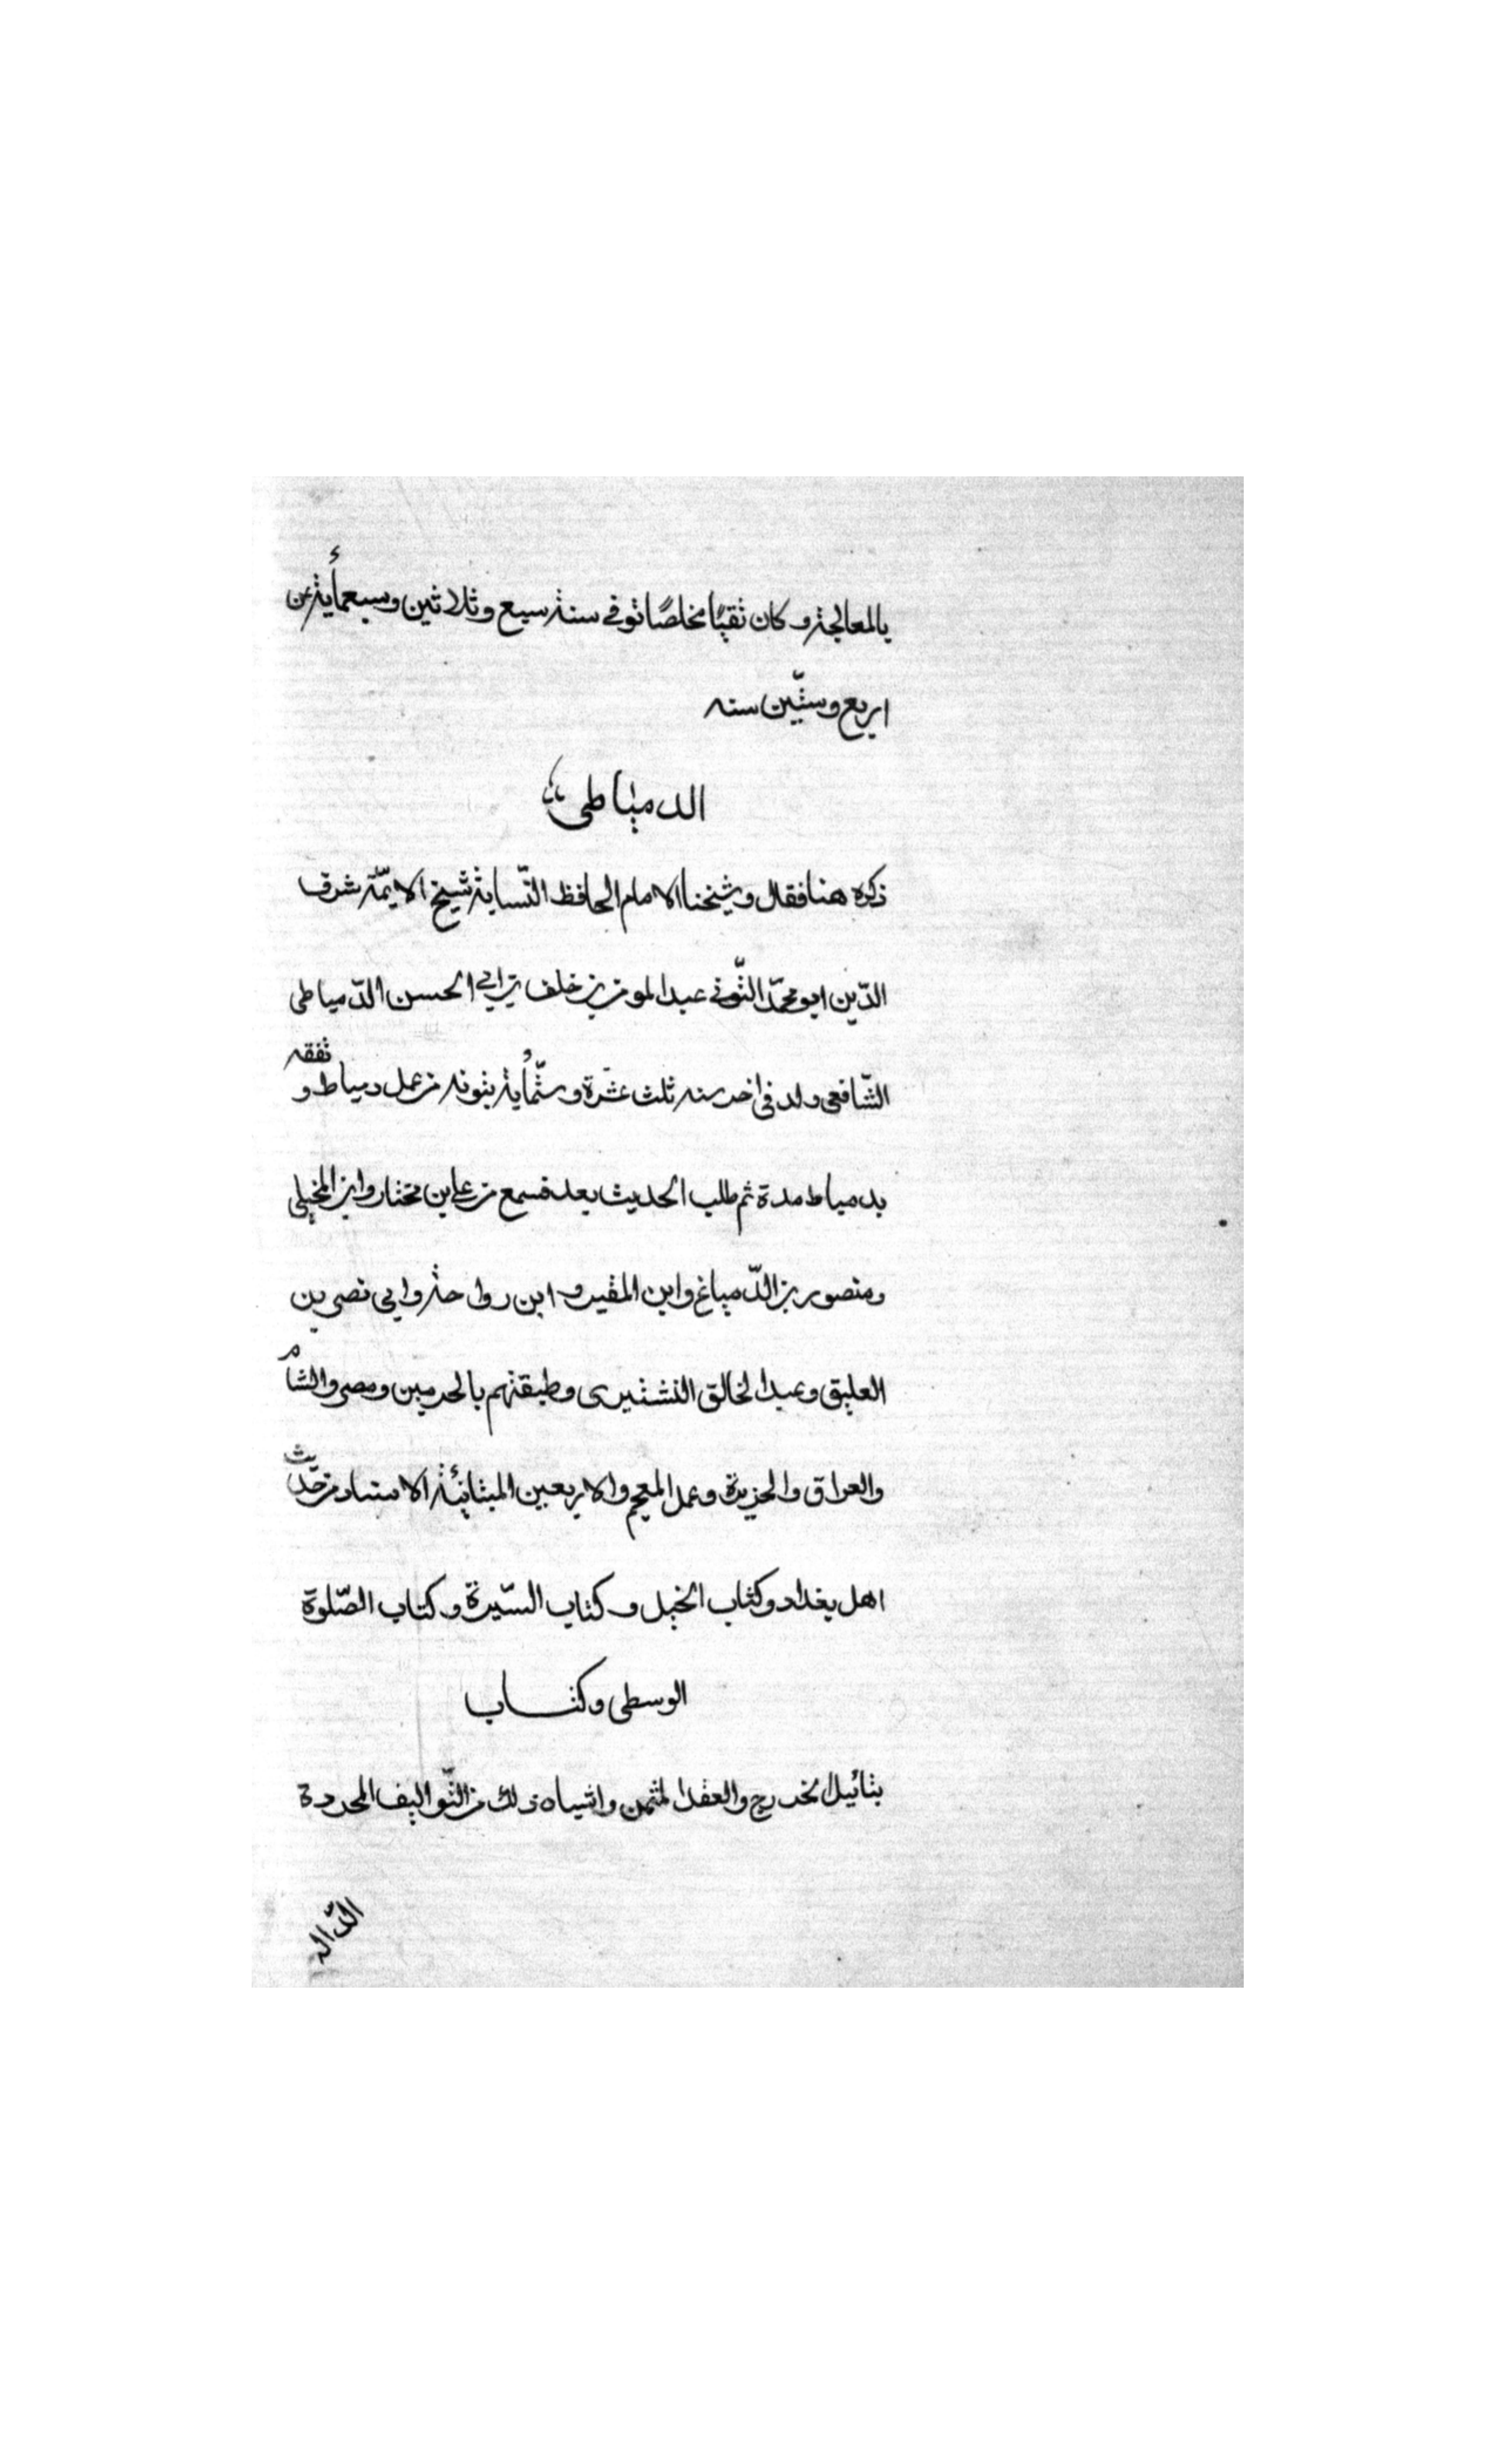 بالمعالجة وكان ثقبًا مخلصًا توفى سنة سبع وثلاثين وسبعمأية عن
اربع وستّين سنه
الدمياطى
ذكره هنا فقال وشيخنا الامام الحافظ النّسابة شيخ الايمّة شرف
الدّين ابو محمّد التّونى عبد المومن بن خلف بن ابى الحسن الدّمياطى
الشّافعى ولد فى اخر سنه ثلث عشرة وستّمأية بتونه من عمل دمياط وتفقه
بدمياط مدة ثم طلب الحديث بعد فسمع من على بن مختار وابن المخيلى
ومنصور بن الدّمباغ وابن المقير و ابن رواحة وابى نصر بن
العليق وعبد الخالق النشتبرى وطبقتهم بالحرمين ومصر والشام
والعراق والجزيرة وعمل المعجم والاربعين المتبائنة الاسناد من حديث
اهل بغداد وكتاب الخيل وكتاب السّيرة وكتاب الصّلوة
الوسطى وكتاب
الخدرج والعقد المثمن واشباه ذلك من التّواليف المحررة
الدّالة